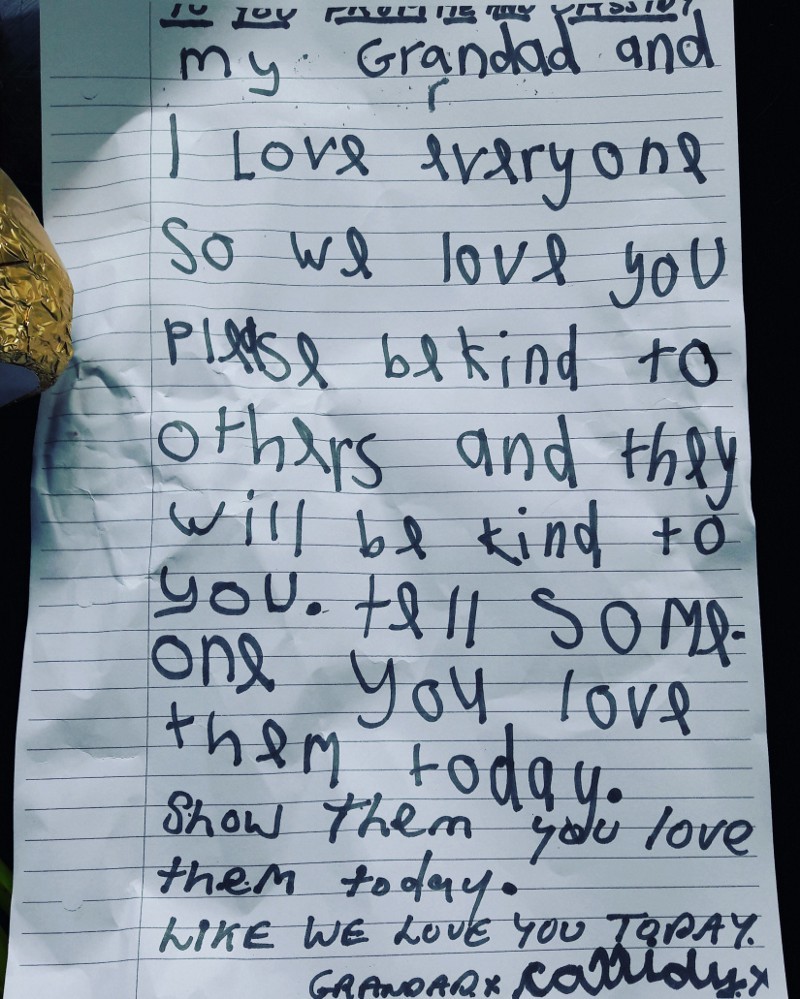 TO YOU FROM ME AND CASSIDY,
my Grandad and
I Love everyone
So we love you
Please be kind to
others and they
will be kind to
you. tell some-
one you love
them today.
Show them you love
them today.
LIKE WE LOVE YOU TODAY.
GRANDAD.x Cassidy.x